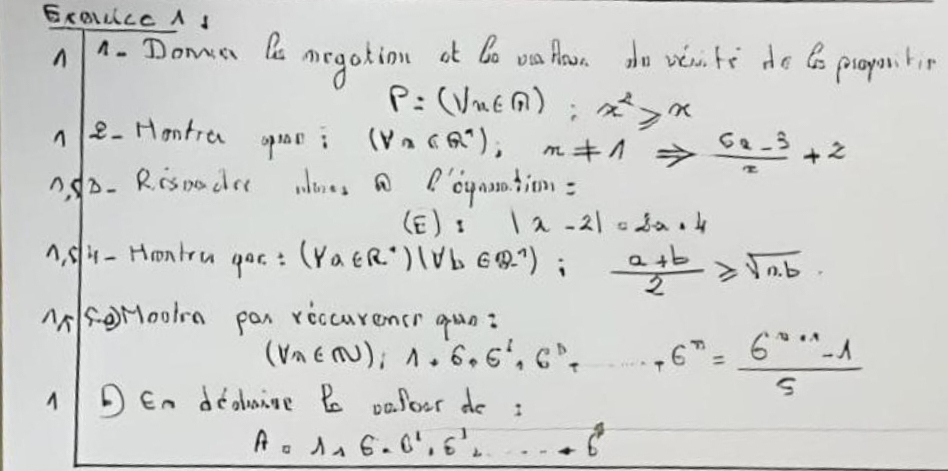 Exercice 1 :
1 1- Donner la negation et la valeur de vérité de la proposition
P = (∀x∈ℝ) ; x² ≥ x
1 2- Montrer que : (∀x∈ℝ*) ; x ≠ 1 ⇒ (5x-3)/x ≠ 2
1,5 3- Résoudre dans ℝ l'équation :
(E) : |x-2| = 2x+4
1,5 4- Montrer que : (∀a∈ℝ⁺)(∀b∈ℝ⁺) ; (a+b)/2 ≥ √a.b.
1,5 5-a) Montrer par réccurence que :
(∀n∈ℕ) ; 1+6+6²+6³+.......+6ⁿ = (6ⁿ⁺¹-1)/5
1 b) En déduire la valeur de :
A = 1+6+6²+6³+.......+6